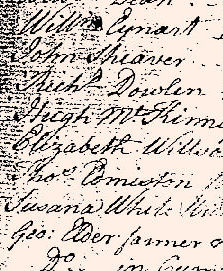 Willm Eynart
John Sheaver
Richd Dowlen
Hugh Mc Kinn
Elizabeth Willi
Thos Edmiston
Susana White
Geo: Elder farmer &
Do in